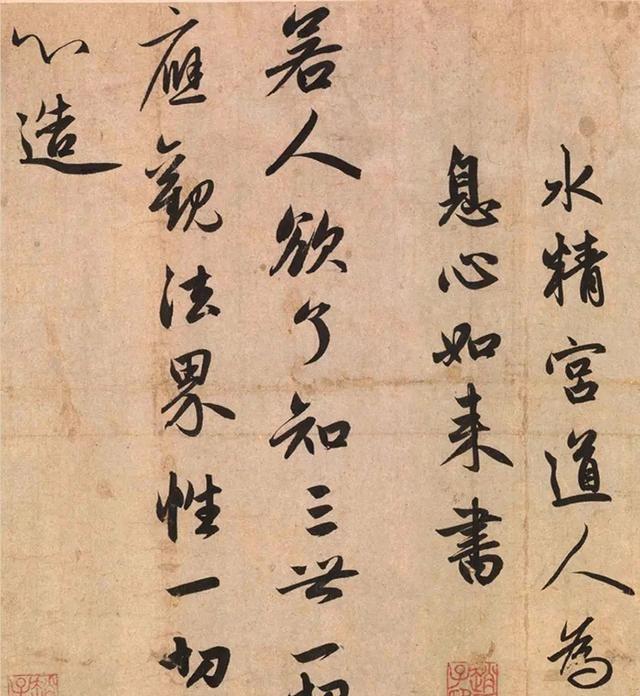 水精宮道人為
息心如来書
若人欲了知三世一切
應觀法界性一切
心造